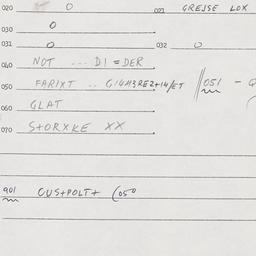 020 0 021 GREJSE LOX
030 0
031 0 032 0
040 NOT --- DI = DER
050 FARIXT .. 051 -
060 GLAT
070 STORXKE XX
901 OUS+POLT+ (050